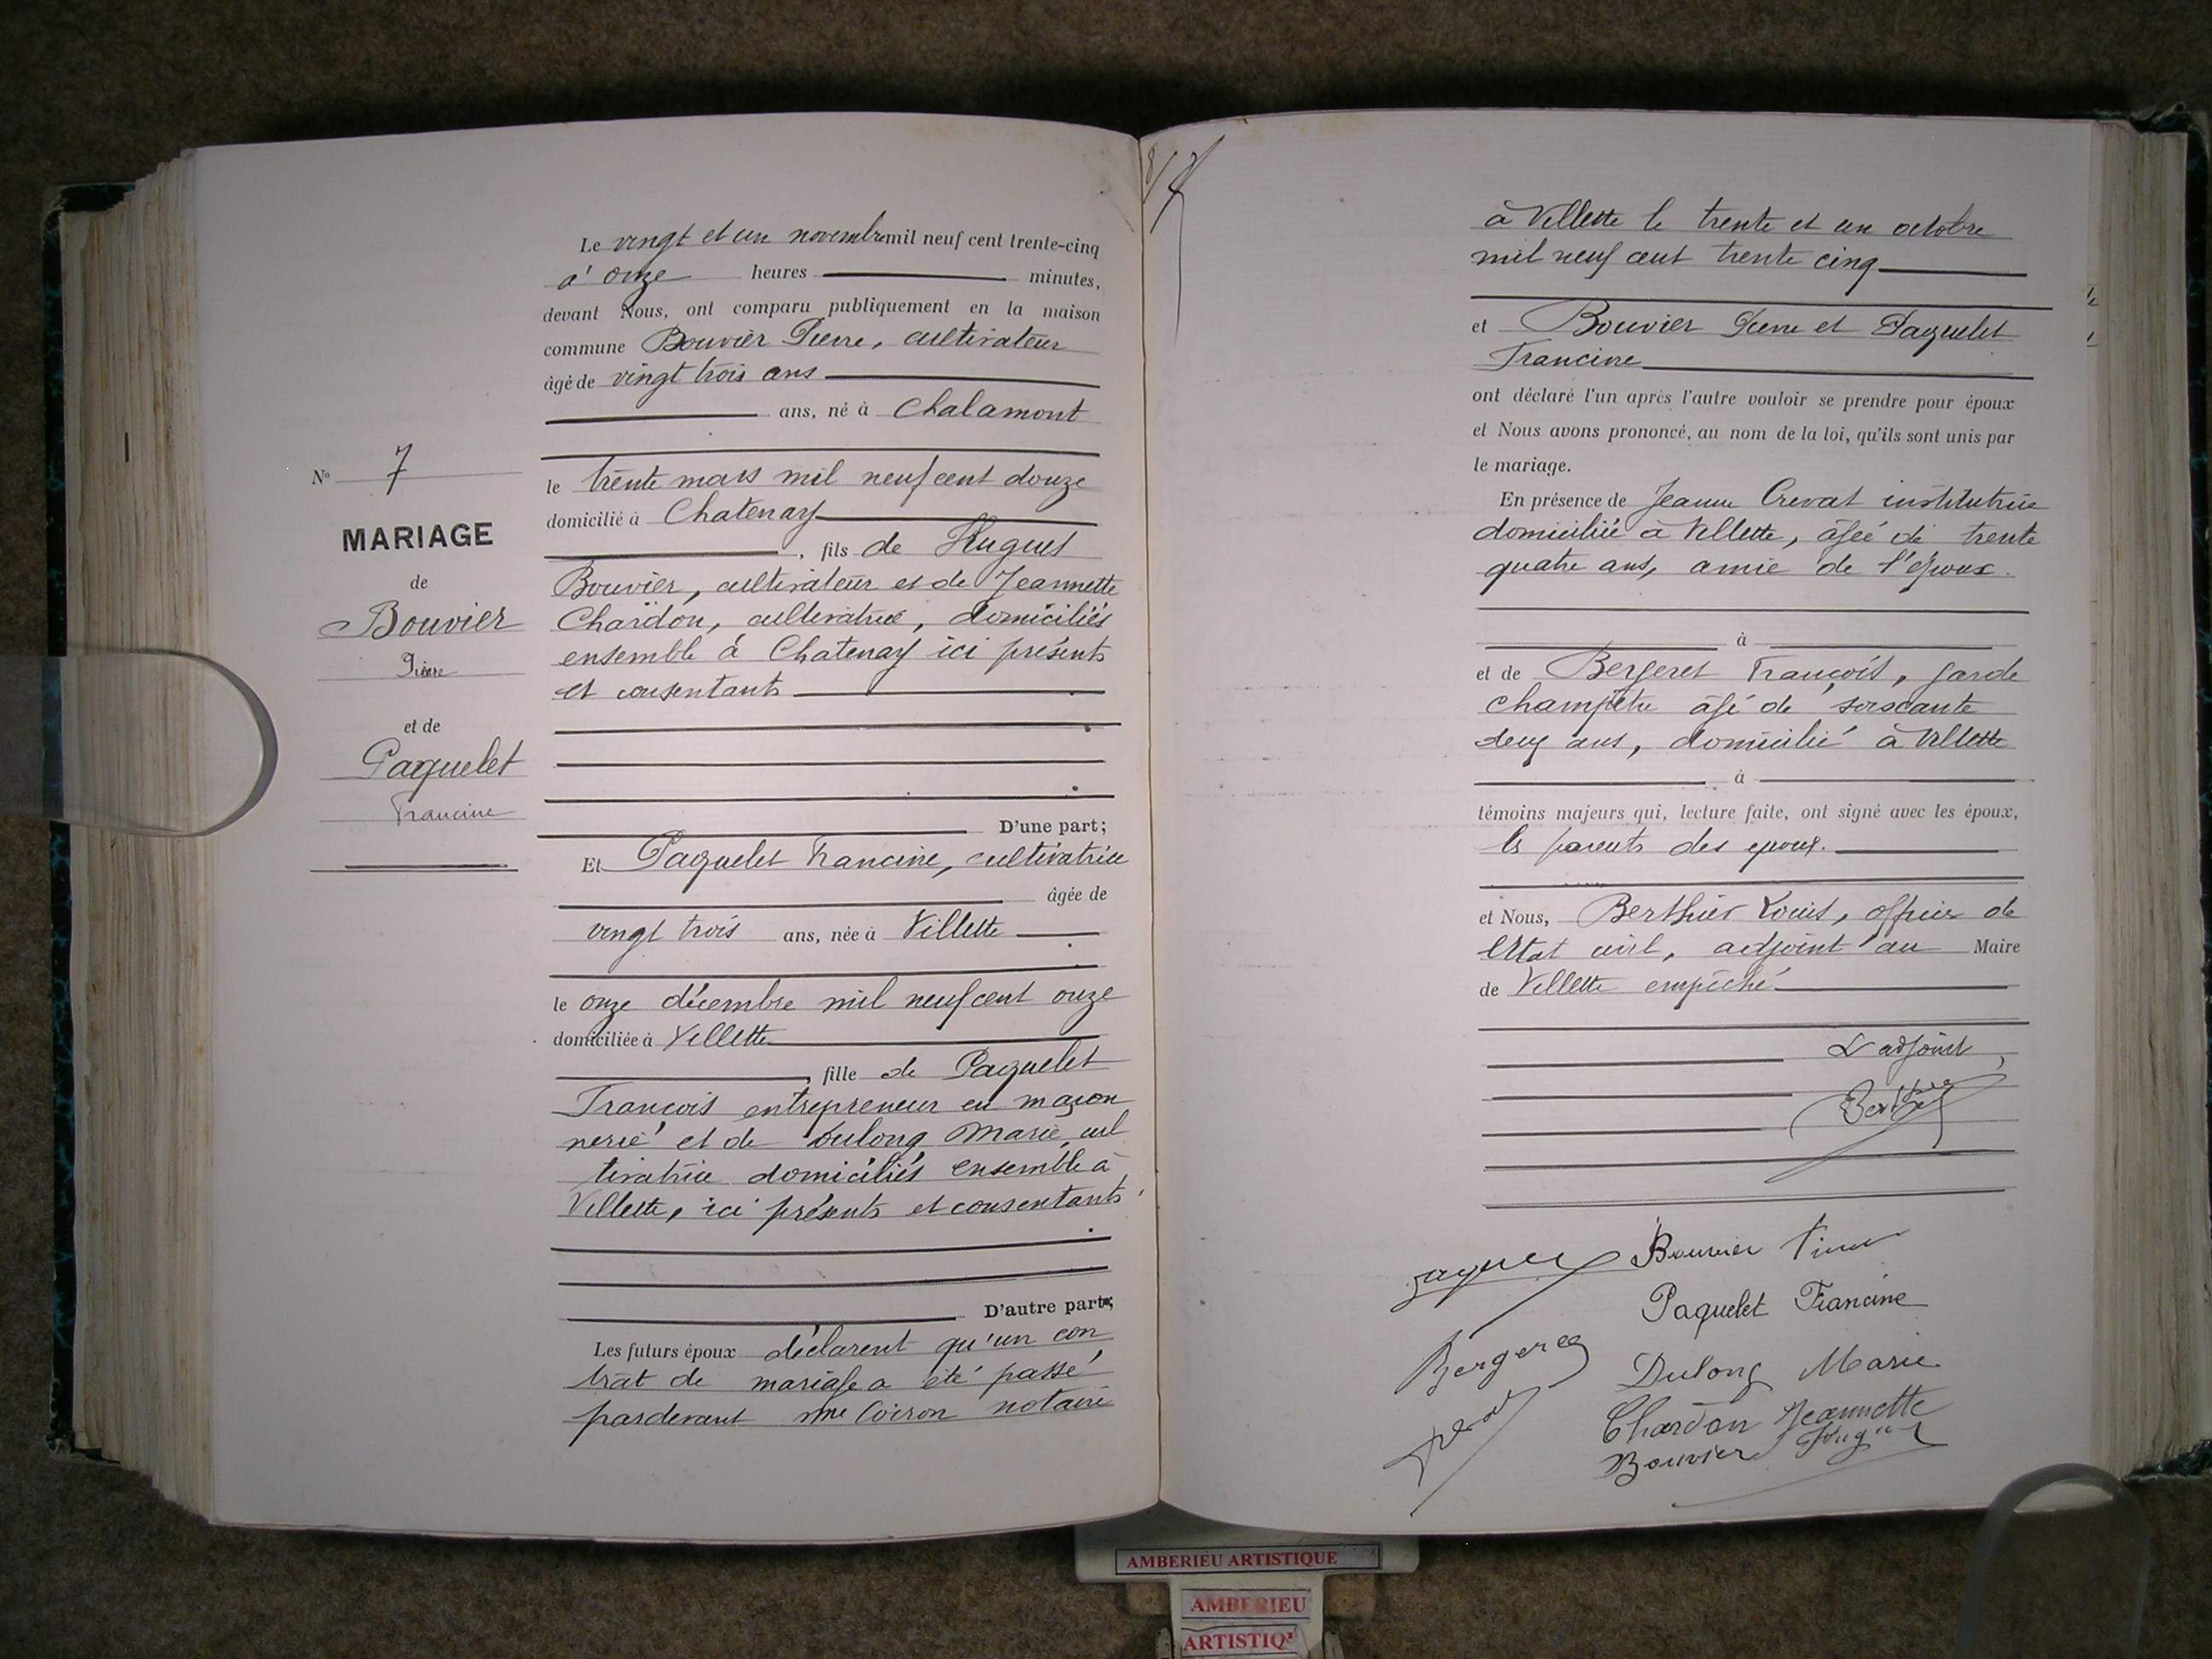 N° 7
MARIAGE
de
Bouvier
Pierre
et de
Paquelet
Francine
Le vingt et un novembre mil neuf cent trente-cinq
à onze heures minutes,
devant Nous, ont comparu publiquement en la maison
commune Bouvier Pierre, cultivateur
âgé de vingt trois ans
ans, né à Chalamont
le trente mars mil neuf cent douze
domicilié à Chatenay
, fils de Hugues
Bouvier, cultivateur et de Jeannette
Chardon, cultivatrice, domiciliés
ensemble à Chatenay ici présents
et consentants
D'une part;
Et Paquelet Francine, cultivatrice
âgée de
vingt trois ans, née à Villette
le onze décembre mil neuf cent onze
domiciliée à Villette
, fille de Paquelet
François entrepreneur en maçon
nerie et de Dulong Marie, cul
tivatrice domiciliés ensemble à
Villette, ici présents et consentants
D'autre part;
Les futurs époux déclarent qu'un con
trat de mariage a été passé
pardevant Me Coiron notaire
à Villette le trente et un octobre
mil neuf cent trente cinq
et Bouvier Pierre et Paquelet
Francine
ont déclaré l'un après l'autre vouloir se prendre pour époux
et Nous avons prononcé, au nom de la loi, qu'ils sont unis par
le mariage.
En présence de Jeanne Crevat institutrice
domiciliée à Villette, âgée de trente
quatre ans, amie de l'époux.
à
et de Bergeret François, garde
champêtre âgé de soixante
deux ans, domicilié à Villette
à
témoins majeurs qui, lecture faite, ont signé avec les époux,
les parents des époux.
et Nous, Berthier Louis, officier de
l'Etat civil, adjoint au Maire
de Villette empêché
L'adjoint
Berthier
Bouvier Pierre
Paquelet Francine
Bergeret
Dulong Marie
Chardon Jeannette
Bouvier Hugues
AMBERIEU ARTISTIQUE
AMBERIEU
ARTISTIQ